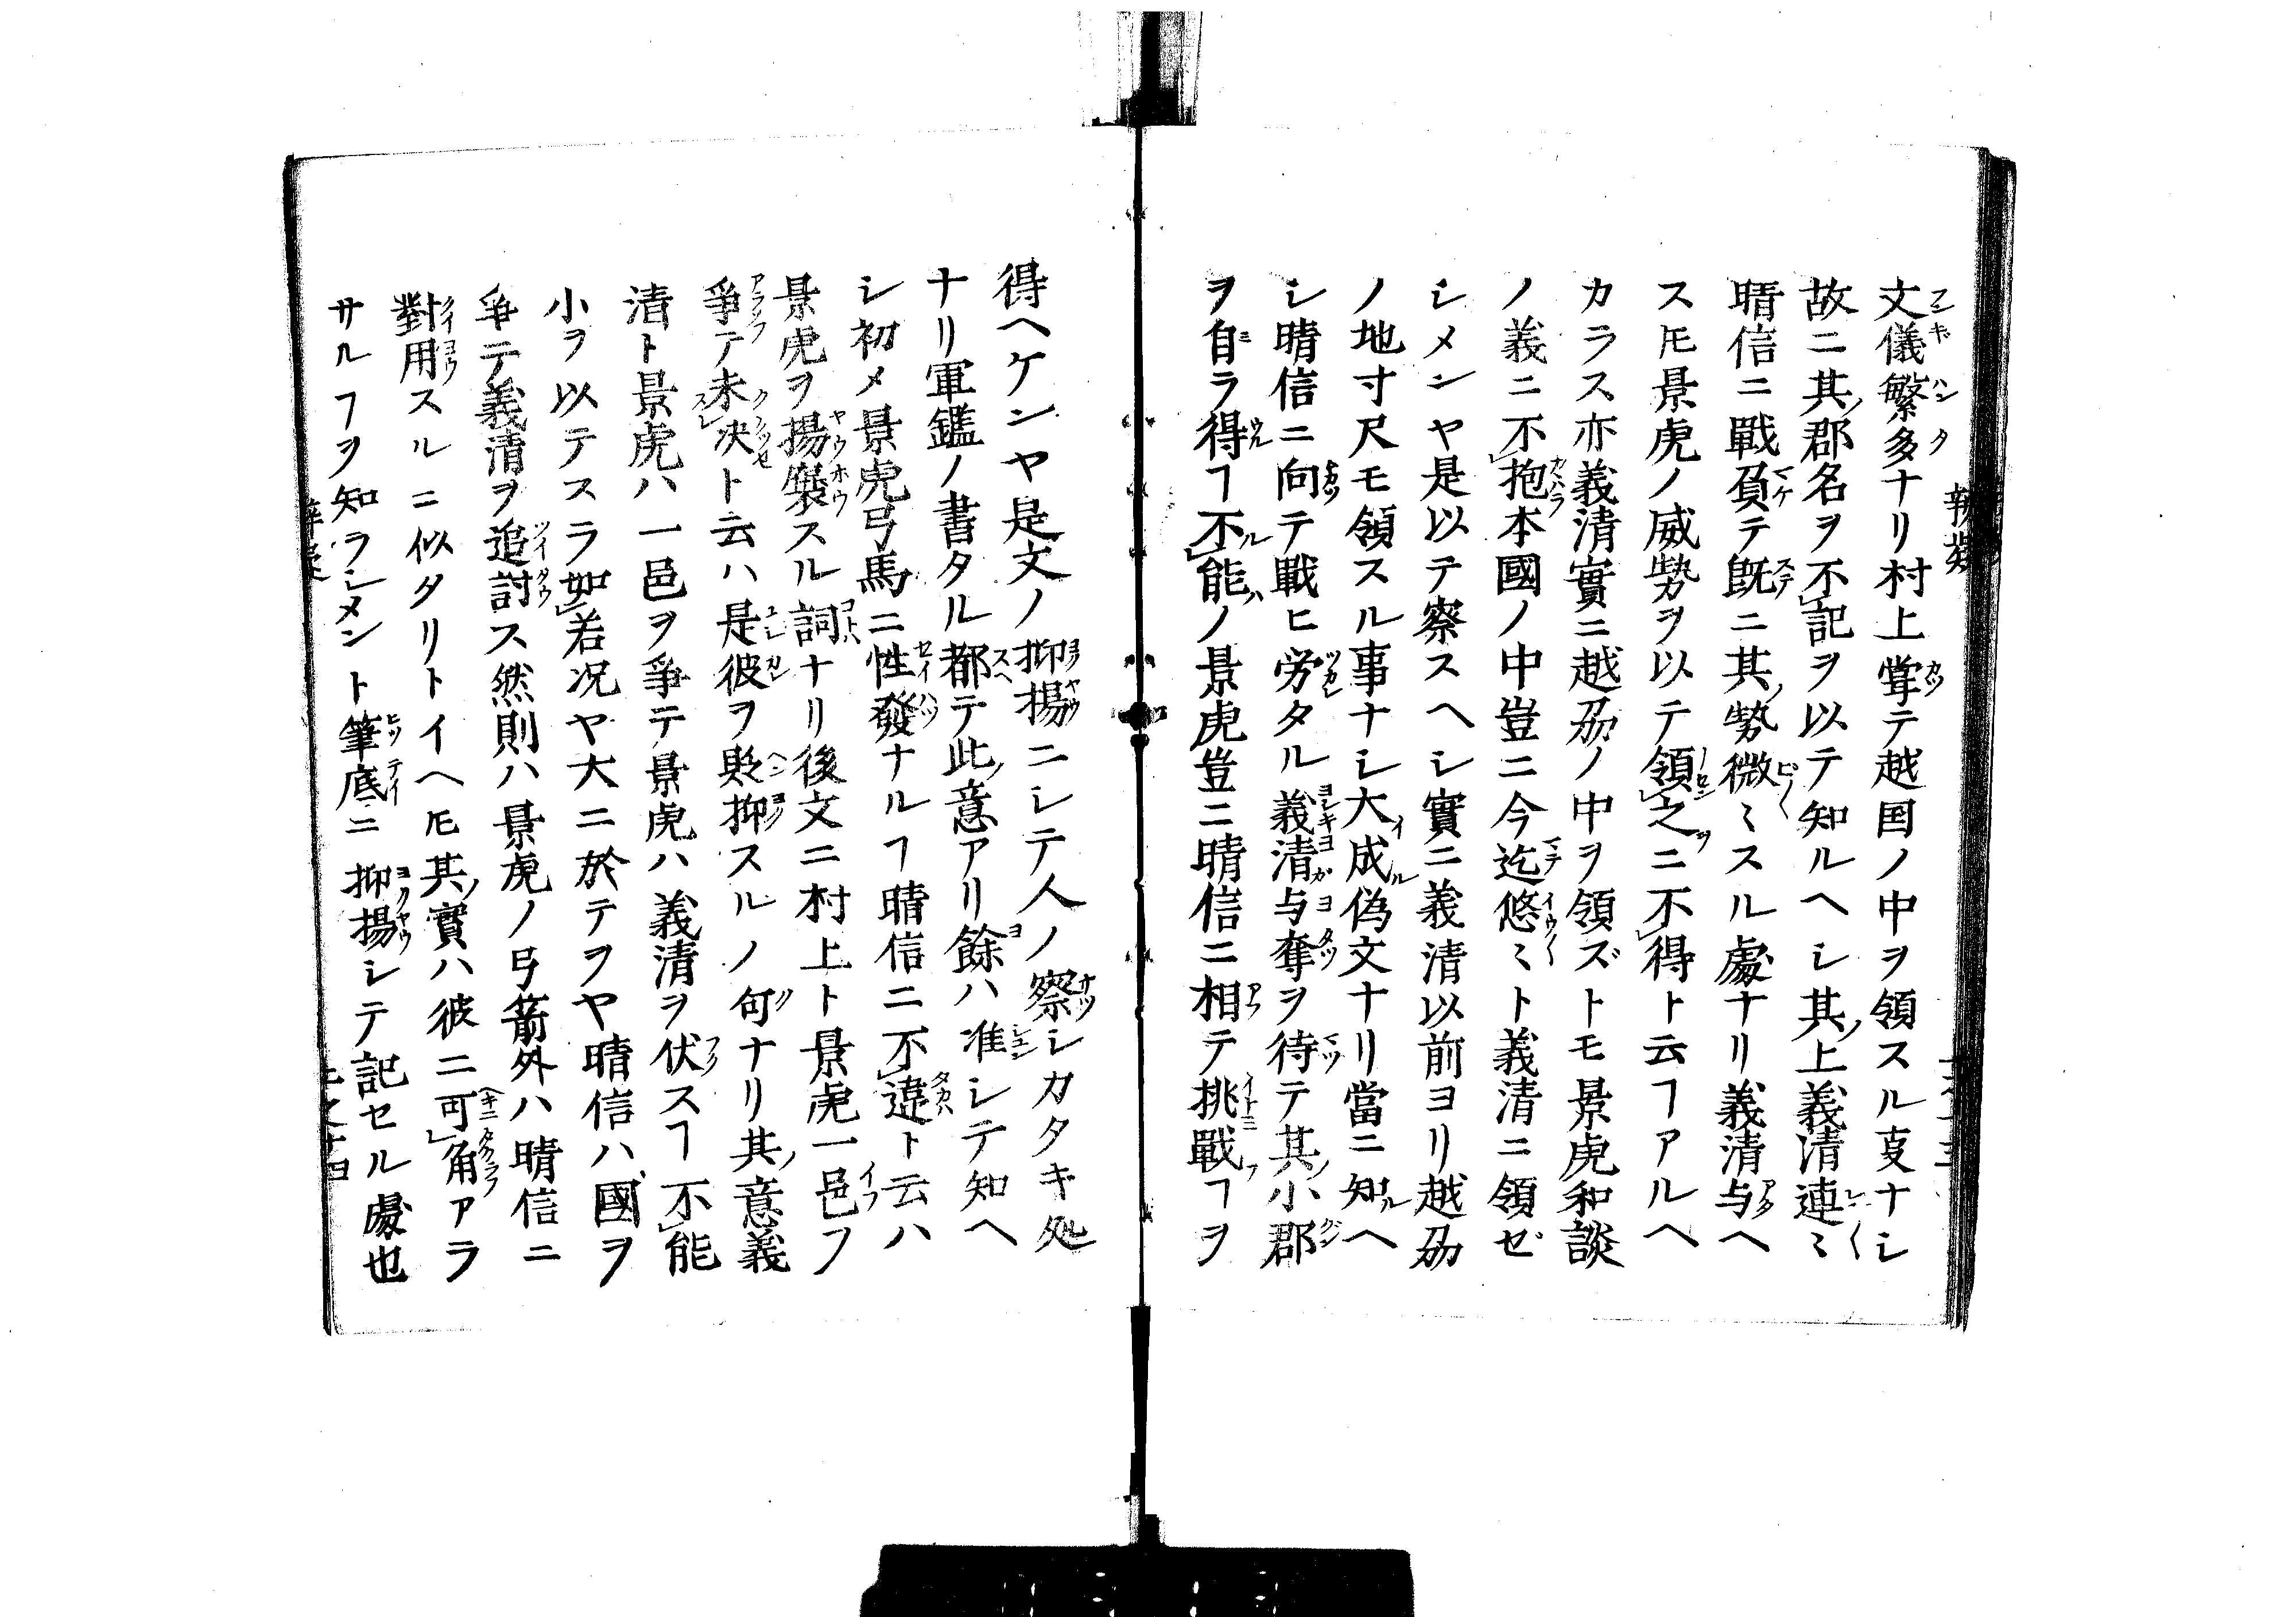 文儀繁多ナリ村上甞テ越国ノ中ヲ領スル㕝ナシ
故ニ其ノ郡名ヲ不記ヲ以テ知ルヘシ其ノ上義清連〻
晴信ニ戰負テ既ニ其ノ勢微〻スル處ナリ義清与ヘ
ストモ景虎ノ威勢ヲ以テ領之ニ不得ト云ヿアルヘ
カラス亦義清實ニ越刕ノ中ヲ領ズトモ景虎和談
ノ義ニ不抱本國ノ中豈ニ今迄悠〻ト義清ニ領ゼ
シメンヤ是以テ察スヘシ實ニ義清以前ヨリ越刕
ノ地寸尺モ領スル事ナシ大成偽文ナリ當ニ知ルヘ
シ晴信ニ向テ戰ヒ労タル義清与奪ヲ待テ其ノ小郡
ヲ自ラ得ヿ不能ノ景虎豈ニ晴信ニ相テ挑戰ヿヲ
得ヘケンヤ是文ノ抑揚ニシテ人ノ察シカタキ処
ナリ軍鑑ノ書タル都テ此ノ意アリ餘ハ准シテ知ヘ
シ初メ景虎弓馬ニ性發ナルヿ晴信ニ不違ト云ハ
景虎ヲ揚襃スル詞ナリ後文ニ村上ト景虎一邑ヲ
爭テ未決ト云ハ是彼ヲ貶抑スルノ句ナリ其ノ意義
清ト景虎ハ一邑ヲ爭テ景虎ハ義清ヲ伏スヿ不能
小ヲ以テスラ如若况ヤ大ニ於テヲヤ晴信ハ國ヲ
爭テ義清ヲ追討ス然則ハ景虎ノ弓箭外ハ晴信ニ
對用スルニ似タリトイヘトモ其ノ實ハ彼ニ可角アラ
サルヿヲ知ラシメント筆底ニ抑揚シテ記セル處也